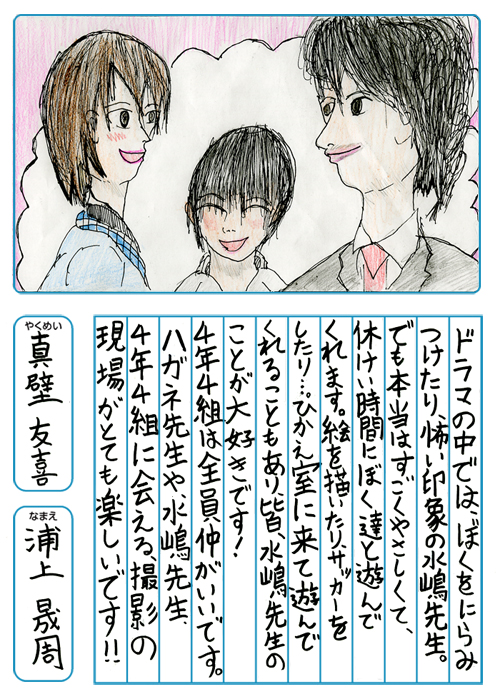 ドラマの中では、ぼくをにらみ
つけたり、怖い印象の水嶋先生。
でも本当はすごくやさしくて、
休けい時間にぼく達と遊んで
くれます。絵を描いたり、サッカーを
したり…。ひかえ室に来て遊んで
くれることもあり皆、水嶋先生の
ことが大好きです!
4年4組は全員仲がいいです。
ハガネ先生や、水嶋先生、
4年4組に会える、撮影の
現場がとても楽しいです!!
やくめい
真壁 友喜
なまえ
浦上 晟周